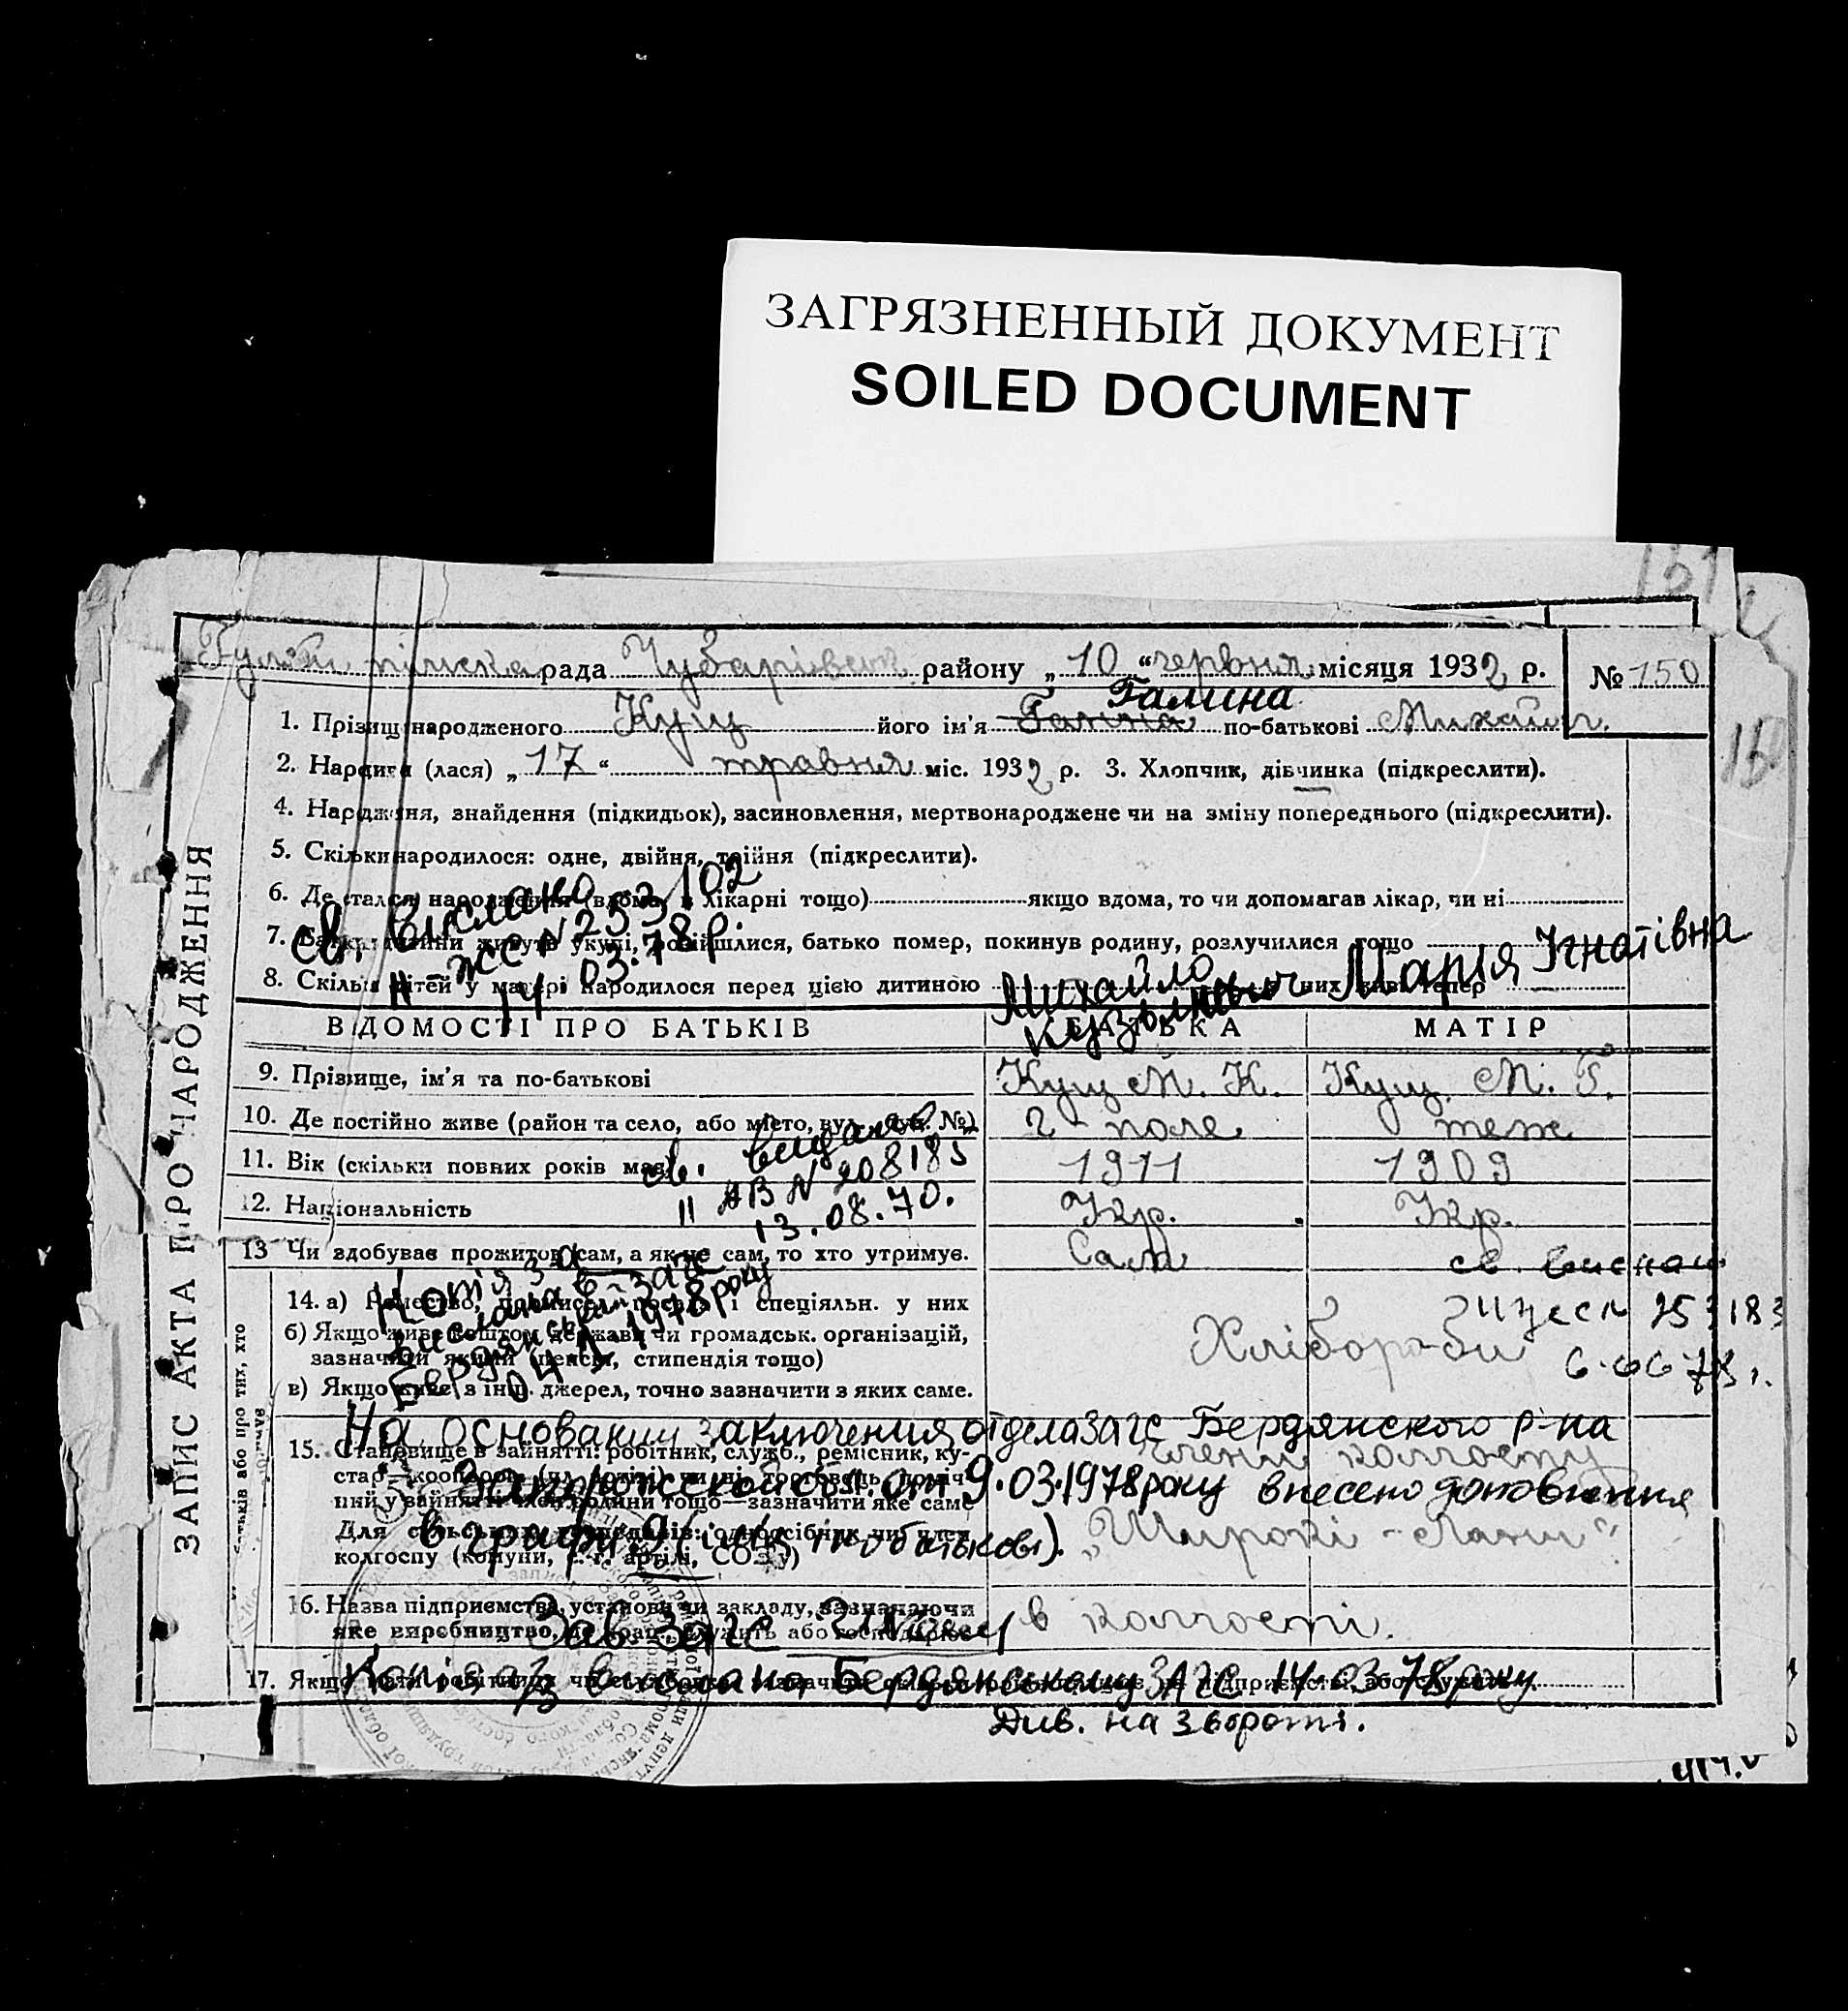 ЗАГРЯЗНЕННЫЙ ДОКУМЕНТ
SOILED DOCUMENT
151
рада Чубарівськ. району „ 10 “ червня місяця 1932 р. № 150
1. Прізвищ народженого Кущ його ім'я Галина по-батькові Михайл.
150
2. Народився (лася) „ 17 “ травня міс. 1932 р. 3. Хлопчик, дівчинка (підкреслити).
4. Народження, знайдення (підкидьок), засиновлення, мертвонароджене чи на зміну попереднього (підкреслити).
5. Скільки народилося: одне, двійня, трійня (підкреслити).
6. Де сталося народження (вдома, в лікарні тощо) якщо вдома, то чи допомагав лікар, чи ні
7. Батьки дитини живуть укупі, розійшлися, батько помер, покинув родину, розлучилися тощо
8. Скільки дітей у матері народилося перед цією дитиною них живі тепер
св. вислано
II-ЖС № 253102
14.03.78р.
Михайло Кузьмович
Марія Ігнатівна
ЗАПИС АКТА ПРО НАРОДЖЕННЯ
ВІДОМОСТІ ПРО БАТЬКІВ БАТЬКА МАТІР
9. Прізвище, ім'я та по-батькові Кущ М. К. Кущ. М. Г.
10. Де постійно живе (район та село, або місто, вул., буд. №) Г-поле теж
11. Вік (скільки повних років має) 1911 1909
12. Національність Укр. Укр.
св. видане
II АВ № 208185
13.08.70.
13 Чи здобуває прожиток сам, а як не сам, то хто утримує. Сам
св. вислан
253183
6.06.78 г.
14. а) Ремество, промисел, посада і спеціяльн. у них Хлібороби
б) Якщо живе коштом держави чи громадськ. організацій,
зазначити якими (пенсія, стипендія тощо)
в) Якщо живе з інш. джерел, точно зазначити з яких саме.
Копія з-а
вислана в-загс
Бердянський
1978 року
батьків або про тих, хто
утримує
На основании заключения отдела Загс Бердянского р-на
Запорожской обл. от 9.03.1978 року внесено доповнення
в графу 9 (ім'я, по батькові).
15. Становище в зайнятті: робітник, служб., ремісник, ку-
члени колгоспу
„Широкі - Лани“
Для сільських господарів: одноосібник чи член
колгоспу (комуни, с.-г. артілі, СОЗу)
16. Назва підприємства, установи чи закладу, зазначаючи
яке виробництво, де працює, служить або господарює в колгоспі.
Зав. Загс
17. Якщо
Копія а/з вислана Бердянському ЗАГС 14.03.78 року
Див. на звороті.